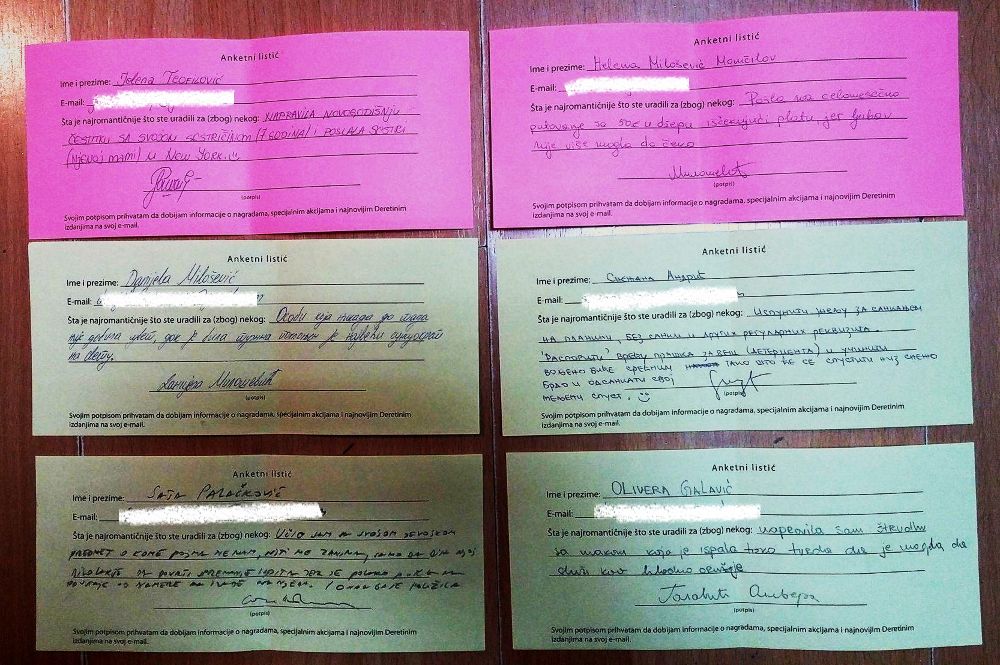 Anketni listić
Ime i prezime: Jelena Teofilović
E-mail:
Šta je najromantičnije što ste uradili za (zbog) nekog: NAPRAVILA NOVOGODIŠNJU
ČESTITKU SA SVOJOM SESTRIČINOM (7 GODINA) I POSLALA SESTRI
(NJENOJ MAMI) U NEW YORK...
(potpis)
Svojim potpisom prihvatam da dobijam informacije o nagradama, specijalnim akcijama i najnovijim Deretinim
izdanjima na svoj e-mail.
Anketni listić
Ime i prezime: Helena Milošević Momčilov
E-mail:
Šta je najromantičnije što ste uradili za (zbog) nekog: Pošla na celomesečno
putovanje sa 50€ u džepu iščekujući platu jer ljubav
nije više mogla da čeka
(potpis)
Svojim potpisom prihvatam da dobijam informacije o nagradama, specijalnim akcijama i najnovijim Deretinim
izdanjima na svoj e-mail.
Anketni listić
Ime i prezime: Danijela Milošević
E-mail:
Šta je najromantičnije što ste uradili za (zbog) nekog: Особи која никада до тада
није добила цвет, док је била тужна поклонио је највећи сунцокрет
на свету.
Данијела Милошевић
(potpis)
Svojim potpisom prihvatam da dobijam informacije o nagradama, specijalnim akcijama i najnovijim Deretinim
izdanjima na svoj e-mail.
Anketni listić
Ime i prezime: Снежана Андрић
E-mail:
Šta je najromantičnije što ste uradili za (zbog) nekog: Испунити жељу за санкањем
на планини, без санки и других регуларних реквизита.
"Распорити" врећу прашка за веш (детергента) и учинити
вољено биће срећним тако што ће се спустити низ снежно
брдо и одсанкати свој
медени спуст. ☺
(potpis)
Svojim potpisom prihvatam da dobijam informacije o nagradama, specijalnim akcijama i najnovijim Deretinim
izdanjima na svoj e-mail.
Anketni listić
Ime i prezime: Saša Paračković
E-mail:
Šta je najromantičnije što ste uradili za (zbog) nekog: Učio sam sa svojom devojkom
predmet o kome pojma nemam, niti me zanima, samo da bih joj
(potpis)
Svojim potpisom prihvatam da dobijam informacije o nagradama, specijalnim akcijama i najnovijim Deretinim
izdanjima na svoj e-mail.
Anketni listić
Ime i prezime: OLIVERA GALAVIĆ
E-mail:
Šta je najromantičnije što ste uradili za (zbog) nekog: napravila sam štrudlu
sa makom koja je ispala toko tvrda da je mogla da
služi kao hladno oružje
Галавић Оливера
(potpis)
Svojim potpisom prihvatam da dobijam informacije o nagradama, specijalnim akcijama i najnovijim Deretinim
izdanjima na svoj e-mail.